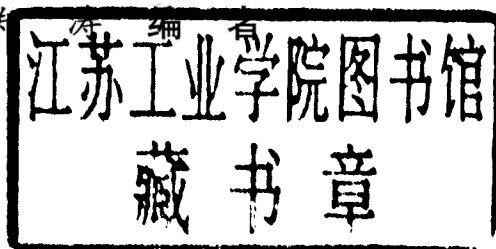 涛 编 者
江苏工业学院图书馆
藏书章